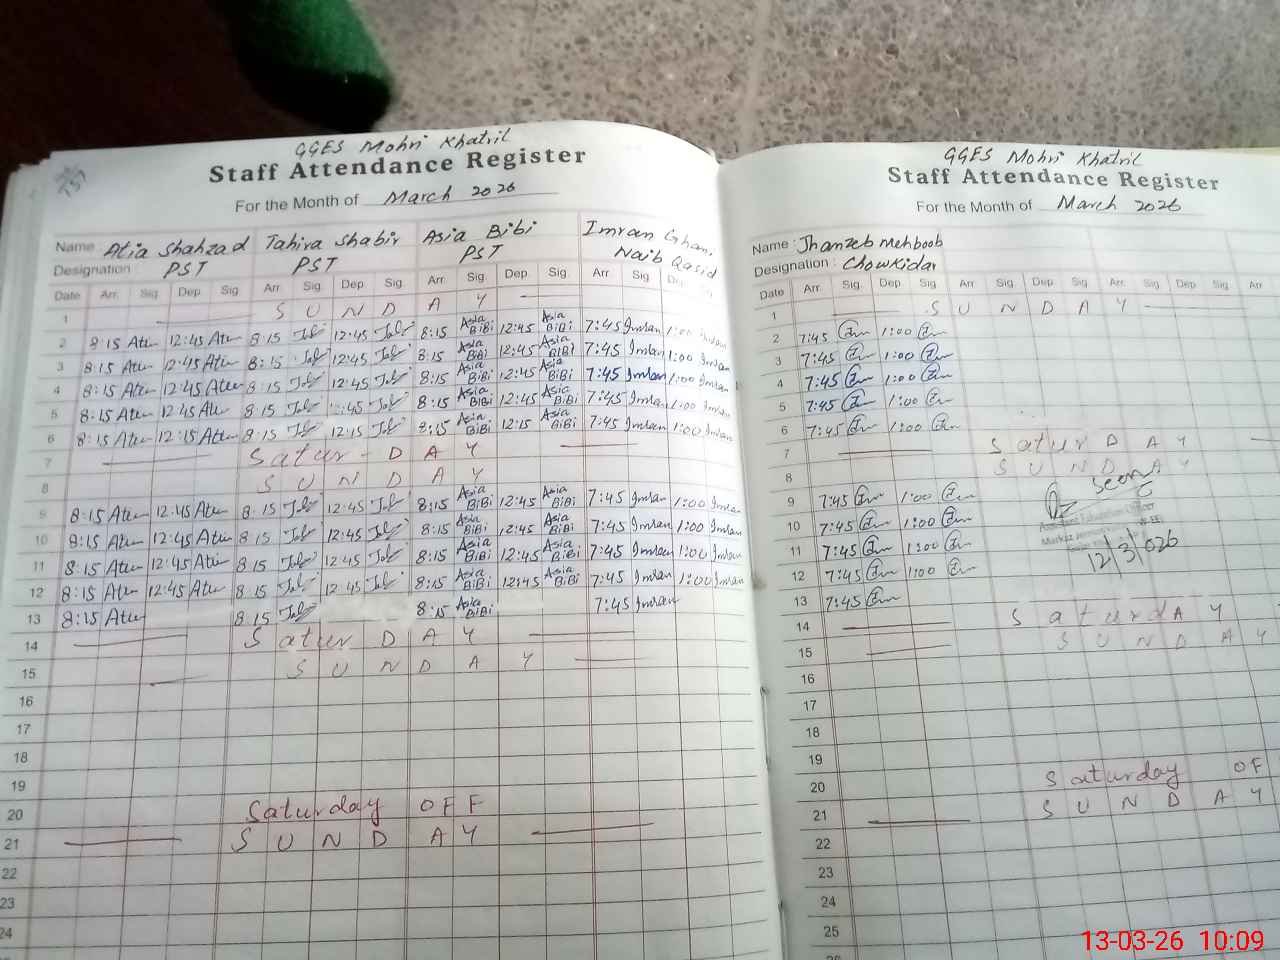 GGES Mohri Khatril
Staff Attendance Register
For the Month of March 2026
Name : Atia Shahzad Tahira Shabir Asia Bibi Imran Ghani
Designation PST PST PST Naib Qasid
Date Arr. Sig. Dep. Sig. Arr. Sig. Dep. Sig. Arr. Sig. Dep. Sig. Arr. Sig.
1 S U N D A Y
2 8:15 12:45 8:15 12:45 8:15 Asia BiBi 12:45 Asia BiBi 7:45 Imran 1:00 Imran
3 8:15 12:45 8:15 12:45 8:15 Asia BiBi 12:45 Asia BiBi 7:45 Imran 1:00 Imran
4 8:15 12:45 8:15 12:45 8:15 Asia BiBi 12:45 Asia BiBi 7:45 Imran 1:00 Imran
5 8:15 12:45 8:15 12:45 8:15 Asia BiBi 12:45 Asia BiBi 7:45 Imran 1:00 Imran
6 8:15 12:15 8:15 12:15 8:15 Asia BiBi 12:15 Asia BiBi 7:45 Imran 1:00 Imran
7 Satur - D A Y
8 S U N D A Y
9 8:15 12:45 8:15 12:45 8:15 Asia BiBi 12:45 Asia BiBi 7:45 Imran 1:00 Imran
10 8:15 12:45 8:15 12:45 8:15 Asia BiBi 12:45 Asia BiBi 7:45 Imran 1:00 Imran
11 8:15 12:45 8:15 12:45 8:15 Asia BiBi 12:45 Asia BiBi 7:45 Imran 1:00 Imran
12 8:15 12:45 8:15 12:45 8:15 Asia BiBi 12:45 Asia BiBi 7:45 Imran 1:00 Imran
13 8:15 8:15 8:15 Asia BiBi 7:45 Imran
14 Satur D A Y
15 S U N D A Y
16
17
18
19
20 Saturday OFF
21 S U N D A Y
22
23
24
GGES Mohri Khatril
Staff Attendance Register
For the Month of March 2026
Name : Jhanzeb Mehboob
Designation : Chowkidar
Date Arr. Sig. Dep. Sig. Arr. Sig. Dep. Sig. Arr. Sig. Dep. Sig. Arr
1 S U N D A Y
2 7:45 1:00
3 7:45 1:00
4 7:45 1:00
5 7:45 1:00
6 7:45 1:00
7 Satur D A Y
8 S U N D A Y
Seen
9 7:45 1:00
10 7:45 1:00
Assistant Education Officer
11 7:45 1:00
12/3/026
12 7:45 1:00
13 7:45
14 Saturd A Y
15 S U N D A Y
16
17
18
19
20 Saturday OF
21 S U N D A Y
22
23
24
25
13-03-26 10:09